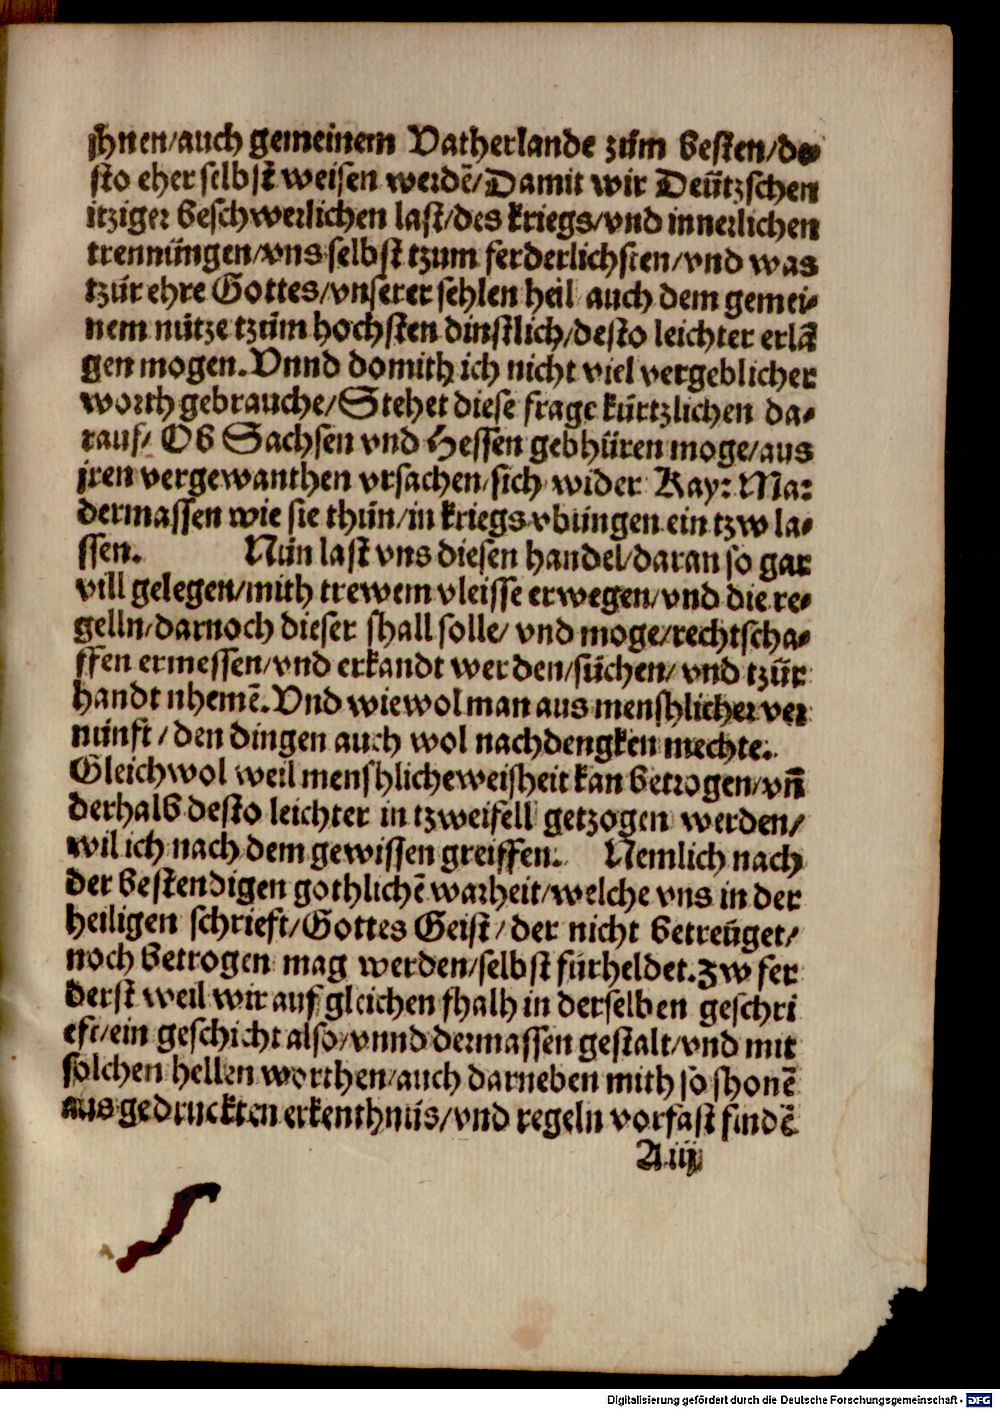 jhnen/auch gemeinem Vatherlande zům besten/de⸗
sto eher selbst weisen werdē/Damit wir Deůtzschen
itziger beschwerlichen last/des kriegs/vnd innerlichen
trennůngen/vns selbst tzum ferderlichsten/vnd was
tzůr ehre Gottes/vnserer sehlen heil auch dem gemei⸗
nem nůtze tzům hochsten dinstlich/desto leichter erlā
gen mogen.Vnnd domith ich nicht viel vergeblicher
worth gebrauche/Stehet diese frage kůrtzlichen da⸗
rauf/ Ob Sachsen vnd Hessen gebhůren moge/aus
jren vergewanthen vrsachen/sich wider Kay: Ma:
dermassen wie sie thůn/in kriegs vbůngen ein tzw la⸗
ssen. Nůn last vns diesen handel/daran so gar
vill gelegen/mith trewem vleisse erwegen/vnd die re⸗
gelln/darnoch dieser fhall solle/ vnd moge/rechtscha⸗
ffen ermessen/vnd erkandt werden/sůchen/ vnd tzůr
handt nhemē.Vnd wiewol man aus menschlicher ver
nůnft/den dingen auch wol nachdengken mechte.
Gleichwol weil menschlicheweisheit kan betrogen/vn̄
derhalb desto leichter in tzweifell getzogen werden/
wil ich nach dem gewissen greiffen. Nemlich nach
der bestendigen gothlichē warheit/welche vns in der
heiligen schrieft/Gottes Geist/der nicht betreůget/
noch betrogen mag werden/selbst fůrheldet.Zw fer
derst weil wir auf gleichen fhalh in derselben geschri
eft/ein geschicht also/vnnd dermassen gestalt/vnd mit
solchen hellen worthen/auch darneben mith so shonē
aus gedruckten erkenthnůs/vnd regeln vorfast findē
A iij
Digitalisierung gefördert durch die Deutsche Forschungsgemeinschaft - DFG